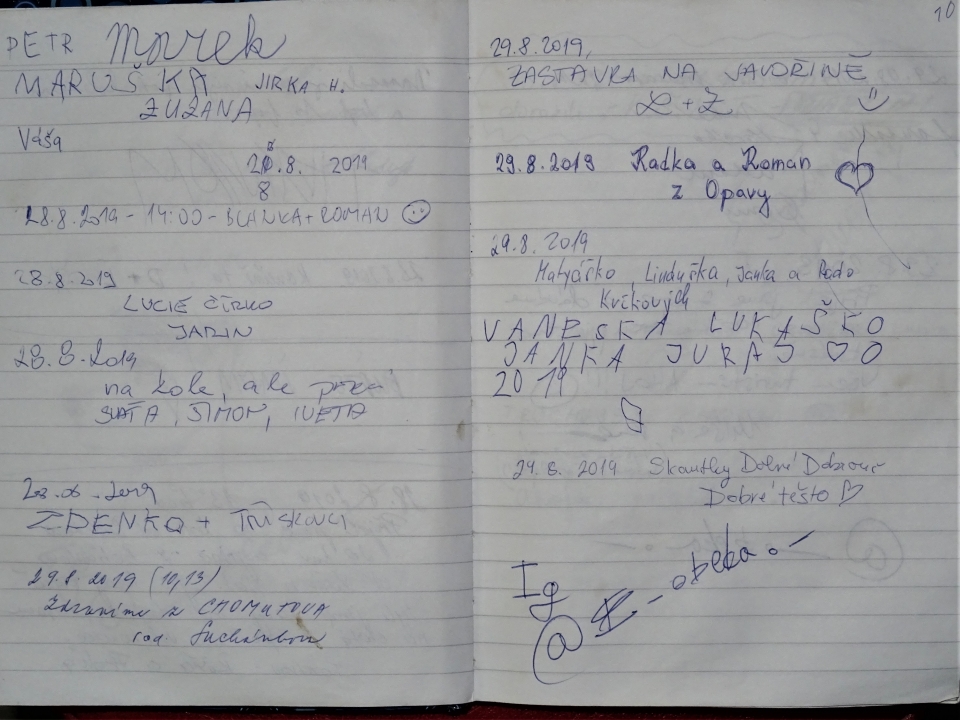 PETR Marek
MARUŠKA JIRKA H.
ZUZANA
Váša
28.8. 2019
8
28.8.2019 - 14:00 - BLANKA + ROMAN
28.8.2019
LUCIE ČÍRKO
JARIN
28.8.2019
na kole, ale
SLÁŤA, ŠIMON, IVETA
28.08.2019
ZDENKA + TŘÍSKOVCI
29.8 2019 (10,13)
Zdravíme z CHOMUTOVA
rod. Suchánkovi
10
29.8.2019,
ZASTÁVKA NA JAVOŘINĚ
L + Ž
29.8.2019 Radka a Roman
z Opavy
29.8.2019
Matyáško, Linduška, Janka a Rado
Kvíkových
VANESKA LUKAŠKO
JANKA JURAJ
2019
29.8. 2019 Skautky Dolní Dobrouč
Dobré těsto
Ig
@